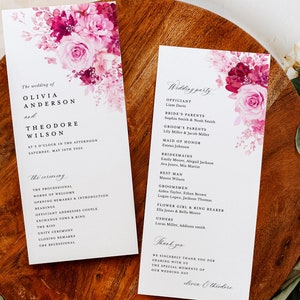 The wedding of
OLIVIA
ANDERSON
and
THEODORE
WILSON
AT 3 O'CLOCK IN THE AFTERNOON
SATURDAY, MAY 18TH 2026
the ceremony
THE PROCESSIONAL
WORDS OF WELCOME
OPENING REMARKS & INTRODUCTION
READINGS
OFFICIANT ADDRESSES COUPLE
EXCHANGE OF VOWS
EXCHANGE OF RINGS
THE KISS
UNITY CEREMONY
CLOSING REMARKS
THE RECESSIONAL
Wedding party
OFFICIANT
Liam Davis
BRIDE'S PARENTS
Sophia Smith & Noah Smith
GROOM'S PARENTS
Lucas Miller & Ava Miller
MAID OF HONOR
Emma Johnson
BRIDESMAIDS
Emily Moore, Abigail Jackson
BEST MAN
Mason Wilson
GROOMSMEN
Logan Lopez, Jackson Thomas
FLOWER GIRL & RING BEARER
USHERS
Lucas Miller, Addison smith
Thank you
WE SINCERELY THANK YOU
FOR SHARING WITH US
THE SPECIAL MOMENTS OF
OUR WEDDING DAY
olivia & theodore